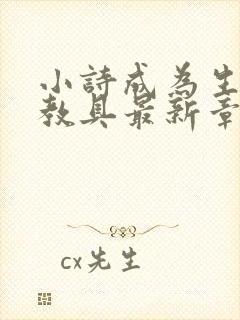 小詩成為生
教具最新章
cx先生